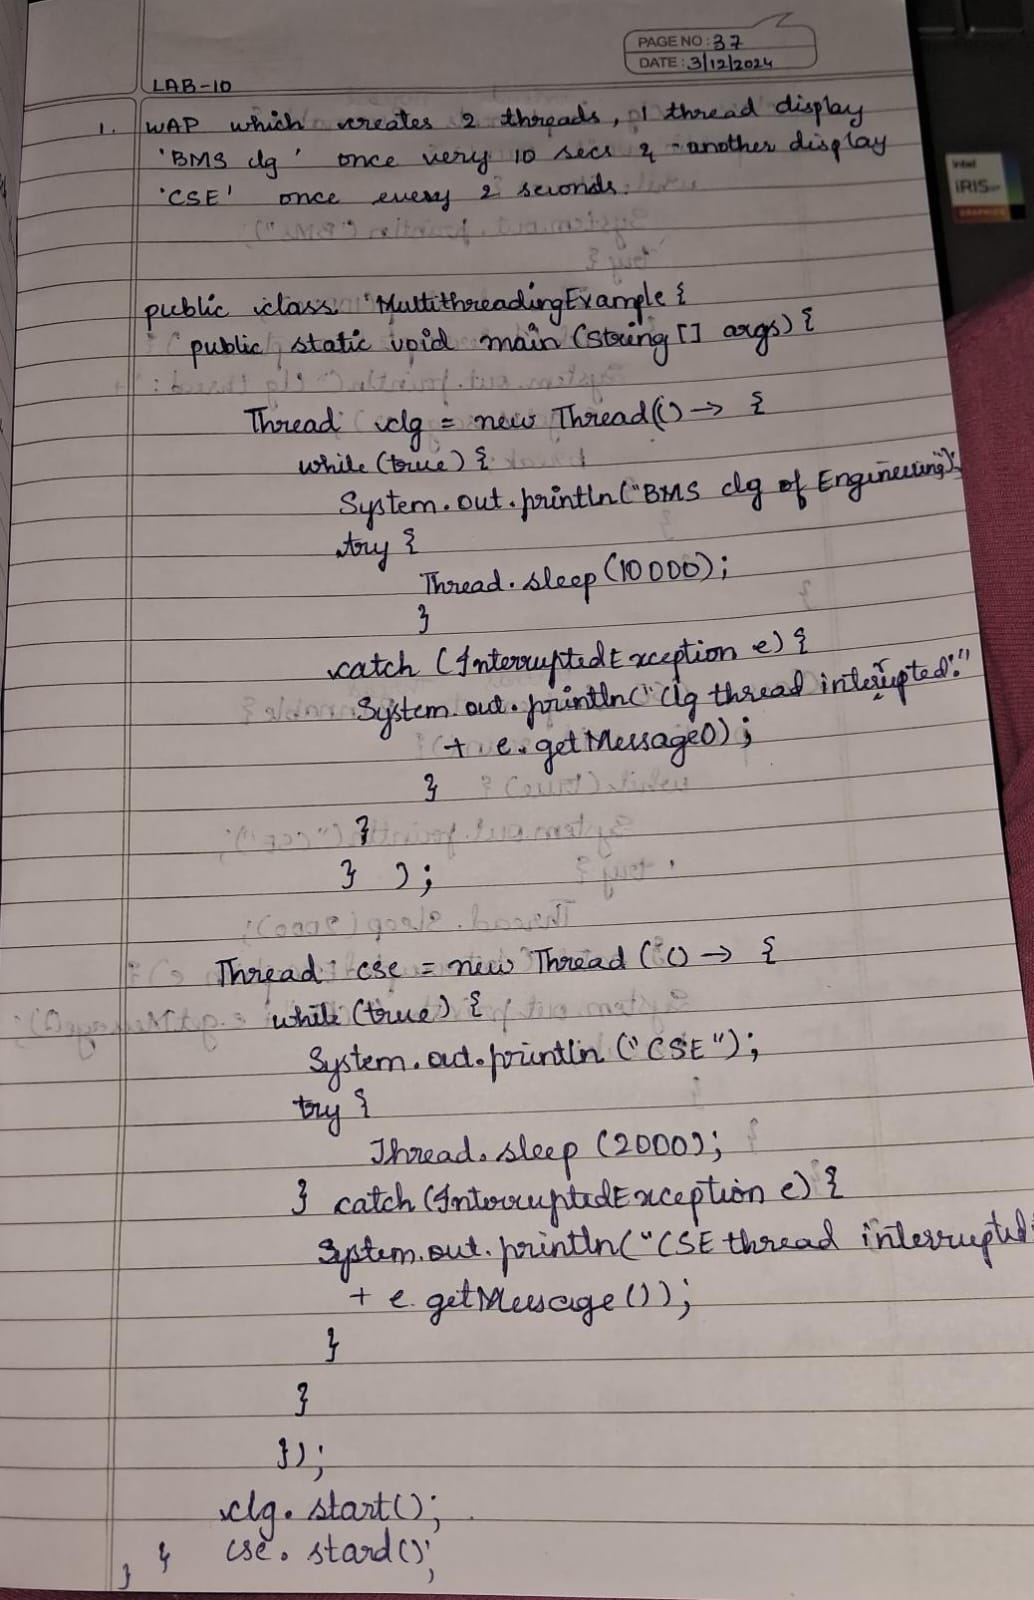 PAGE NO: 37
DATE: 3/12/2024
LAB-10
1. WAP which creates 2 threads, 1 thread display
'BMS clg' once very 10 secs & another display
'CSE' once every 2 seconds.
public class MultithreadingExample {
public static void main (String [] args) {
Thread clg = new Thread(() → {
while (true) {
System.out.println("BMS clg of Engineering");
try {
Thread.sleep (10000);
}
catch (InterruptedException e) {
System.out.println("Clg thread interrupted:"
+ e.getMessage());
}
}
});
Thread cse = new Thread (() → {
while (true) {
System.out.println ("CSE");
try {
Thread.sleep (2000);
} catch (InterruptedException e) {
System.out.println("CSE thread interrupted
+ e.getMessage ());
}
}
});
clg.start();
cse.stard();
}
}
intel
iRIS
GRAPHICS